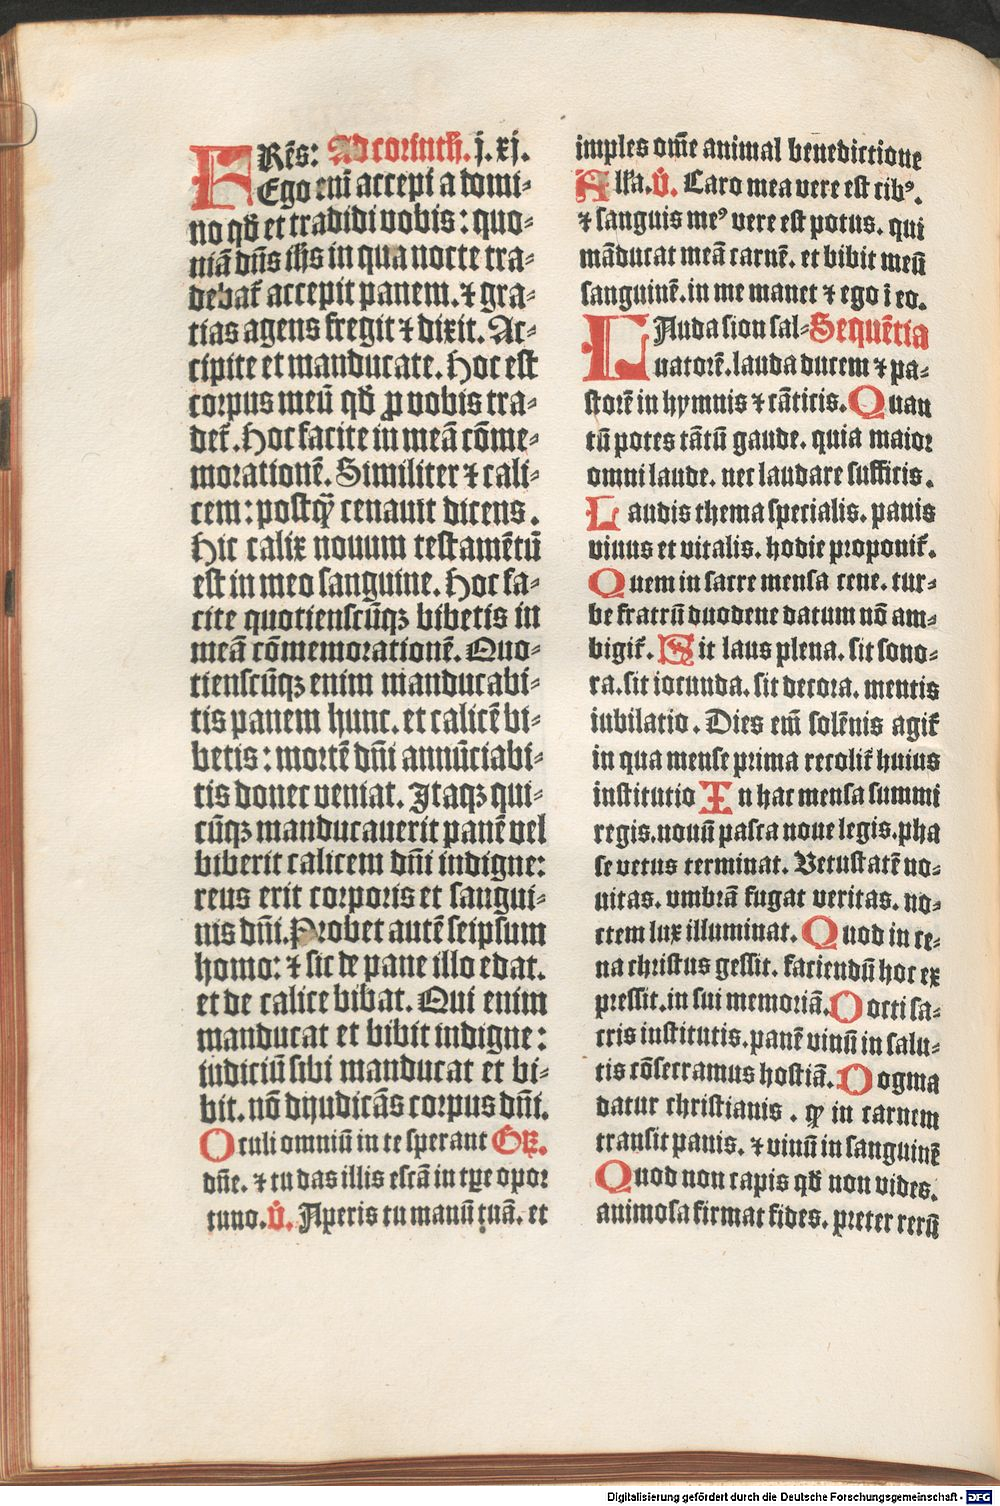 FRẽs: Ad corinth. j. xj.
Ego eni accepi a domi-
no qđ et tradidi vobis: quo-
niā dñs ihs in qua nocte tra-
debat᷑ accepit panem. ⁊ gra-
tias agens fregit ⁊ dixit. Ac-
cipite et manducate. Hoc est
corpus meū qđ ꝓ vobis tra-
det᷑. Hoc facite in meā cōme-
morationē. Similiter ⁊ cali-
cem: postꝙ̄ cenauit dicens.
Hic calix nouum testamētū
est in meo sanguine. Hoc fa-
cite quotienscūqꝫ bibetis in
meā cōmemorationē. Quo-
tienscūqꝫ enim manducabi-
tis panem hunc. et calicē bi-
betis: mortē dñi annūciabi-
tis donec veniat. Itaqꝫ qui-
cūqꝫ manducauerit panē vel
biberit calicem dñi indigne:
reus erit corporis et sangui-
nis dñi. Probet autē seipsum
homo: ⁊ sic de pane illo edat.
et de calice bibat. Qui enim
manducat et bibit indigne:
iudiciū sibi manducat et bi-
bit. nō dijudicās corpus dñi.
Oculi omniū in te sperant Gꝝ.
dñe. ⁊ tu das illis escā in tꝑe opor
tuno. V̾. Aperis tu manū tuā. et
imples om̄e animal benedictione
Alľa. V̾. Caro mea vere est cibꝰ.
⁊ sanguis meꝰ vere est potus. qui
māducat meā carnē. et bibit meū
sanguinē. in me manet ⁊ ego ī eo.
LAuda sion sal- Sequētia
uatorē. lauda ducem ⁊ pa-
storē in hymnis ⁊ cāticis. Quan
tū potes tātū gaude. quia maior
omni laude. nec laudare sufficis.
Laudis thema specialis. panis
viuus et vitalis. hodie proponit᷑.
Quem in sacre mensa cene. tur-
be fratrū duodene datum nō am-
bigit᷑. Sit laus plena. sit sono-
ra. sit iocunda. sit decora. mentis
iubilatio. Dies em̄ solēnis agit᷑
in qua mense prima recolit᷑ huius
institutio In hac mensa summi
regis. nouū pasca noue legis. pha
se vetus terminat. Vetustatē no-
uitas. vmbrā fugat veritas. no-
ctem lux illuminat. Quod in ce-
na christus gessit. faciendū hoc ex
pressit. in sui memoriā. Docti sa-
cris institutis. panē vinū in salu-
tis cōsecramus hostiā. Dogma
datur christianis. ꝙ in carnem
transit panis. ⁊ vinū in sanguinē
Quod non capis qđ non vides.
animosa firmat fides. preter rerū
Digitalisierung gefördert durch die Deutsche Forschungsgemeinschaft - DFG